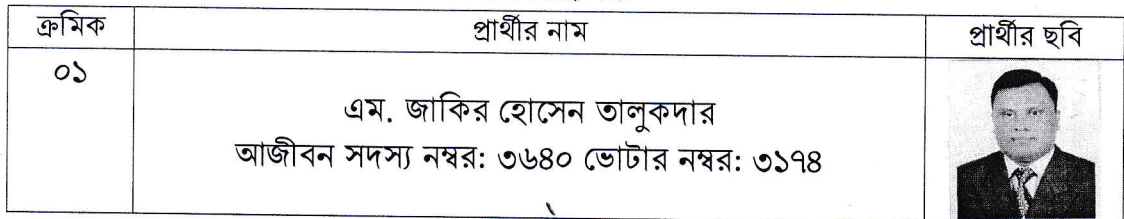 ক্রমিক প্রার্থীর নাম প্রার্থীর ছবি
০১
এম. জাকির হোসেন তালুকদার
আজীবন সদস্য নম্বর: ৩৬৪০ ভোটার নম্বর: ৩১৭৪